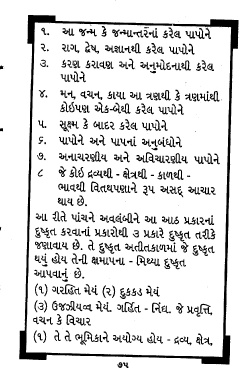 ૧. આ જન્મ કે જન્માન્તરેનાં કરેલ પાપોને
૨. રાગ, દ્વેષ, અજ્ઞાનથી કરેલ પાપોને
૩. કરણ કરાવણ અને અનુમોદનાથી કરેલ
પાપોને
૪. મન, વચન, કાયા આ ત્રણથી કે ત્રણમાંથી
કોઈપણ એક-બેથી કરેલ પાપોને
૫. સૂક્ષ્મ કે બાદર કરેલ પાપોને
૬. પાપોને અને પાપનાં અનુબંધોને
૭. અનાચરણીય અને અવિચારણીય પાપોને
૮ જે કોઈ દ્રવ્યથી - ક્ષેત્રથી - કાળથી -
ભાવથી વિતથપણાને રૂપ અસદ્ આચાર
થાય છે.
આ રીતે પાંચને અવલંબીને આ આઠ પ્રકારનાં
દુષ્કૃત કરવાનાં પ્રકારોથી ૩ પ્રકારે દુષ્કૃત તરીકે
જણાવાય છે. તે દુષ્કૃત અતીતકાળમાં જે દુષ્કૃત
થયું હોય તેની ક્ષમાપના - મિથ્યા દુષ્કૃત
આપવાનું છે.
(૧) ગરહિત મેયં (૨) દુક્કડ મેયં
(૩) ઉજઝિયવ્વ મેયં. ગર્હિત - નિંદ્ય. જે પ્રવૃત્તિ,
વચન કે વિચાર
(૧) તે તે ભૂમિકાને અયોગ્ય હોય - દ્રવ્ય, ક્ષેત્ર,
૭૫